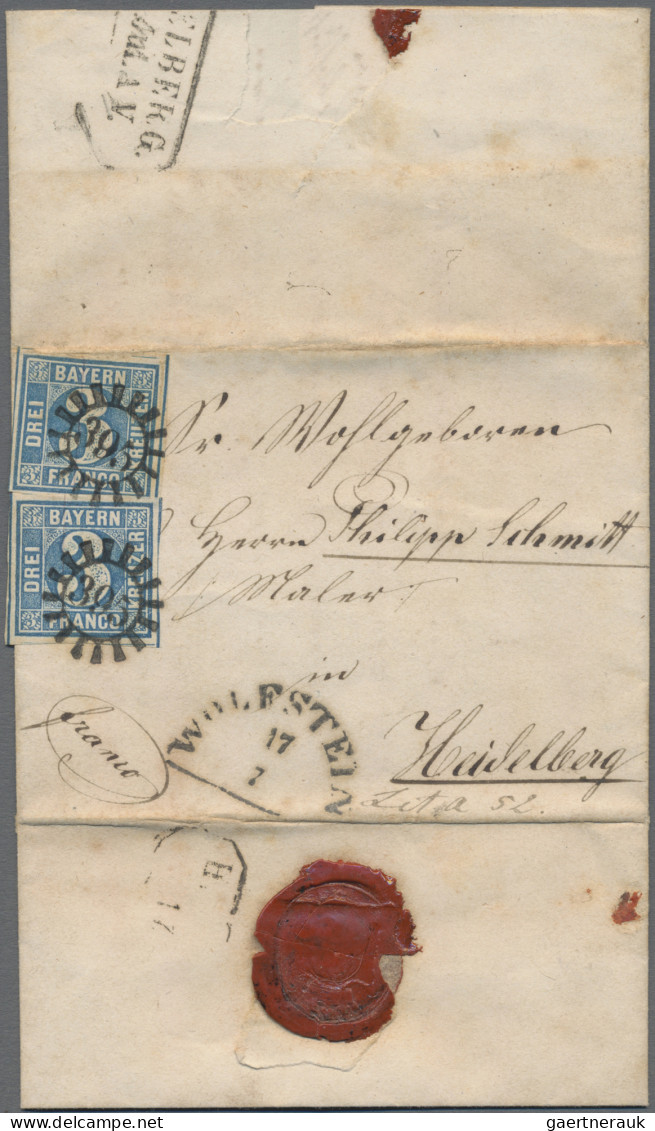 ELBERG.
BAYERN
DREI
KREUZER
FRANCO
395
BAYERN
DREI
3
KREUZER
FRANCO
Sr. Wohlgeboren
Herrn Philipp Schmitt
Maler
in
Heidelberg
franco
WOLFSTEIN
17
7
52.
gaertnerauk